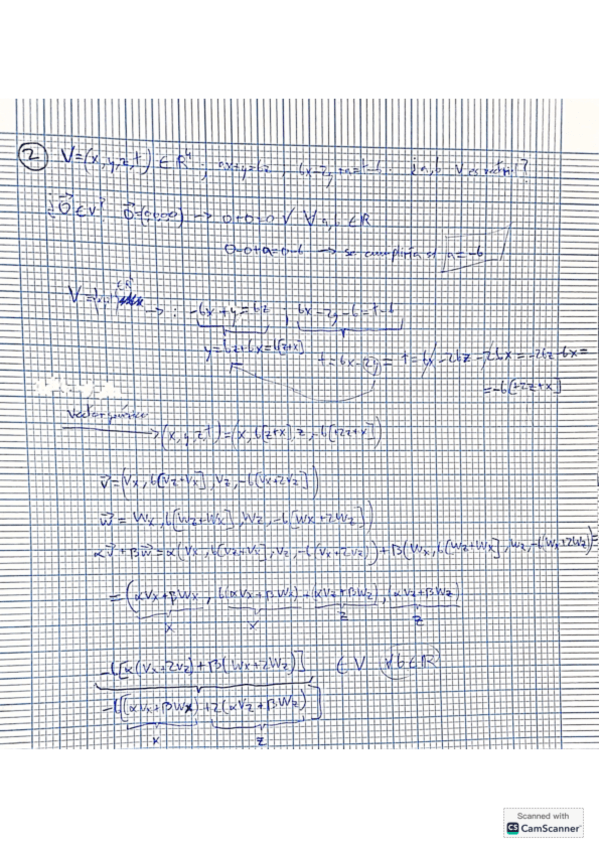 ② V=(x,y,z,t) ∈ R⁴ ; ax+y=bz , bx-2y+a=t-b. ¿a,b V es vectorial?
¿0⃗ ∈ V? 0⃗=(0,0,0,0) → 0+0=0 √ ∀a,b ∈ R
0-0+a=0-b → se cumpliría si a=-b
V= ∈R⁴ → : -bx+y=bz , bx-2y-b=t-b
y=bz+bx=b[z+x] t=bx-2y = t=bx-2bz-2bx=-2bz-bx=
=-b[+2z+x]
vector genérico → (x,y,z,t)=(x,b[z+x],z,-b[+2z+x])
v⃗=(Vx,b[Vz+Vx],Vz,-b[Vx+2Vz])
w⃗=Wx,b[Wz+Wx],Wz,-b[Wx+2Wz])
αv⃗+βw⃗=α(Vx,b[Vz+Vx],Vz,-b(Vx+2Vz))+β(Wx,b[Wz+Wx],Wz,-b(Wx+2Wz))=
=(αVx+βWx, b(αVx+βWx)+(αVz+βWz),(αVz+βWz)
x x z z
-b[α(Vx+2Vz)+β(Wx+2Wz)] ∈ V ∀b∈R
-b[(αVx+βWx)+2(αVz+βWz)]
x z
Scanned with
CS CamScanner